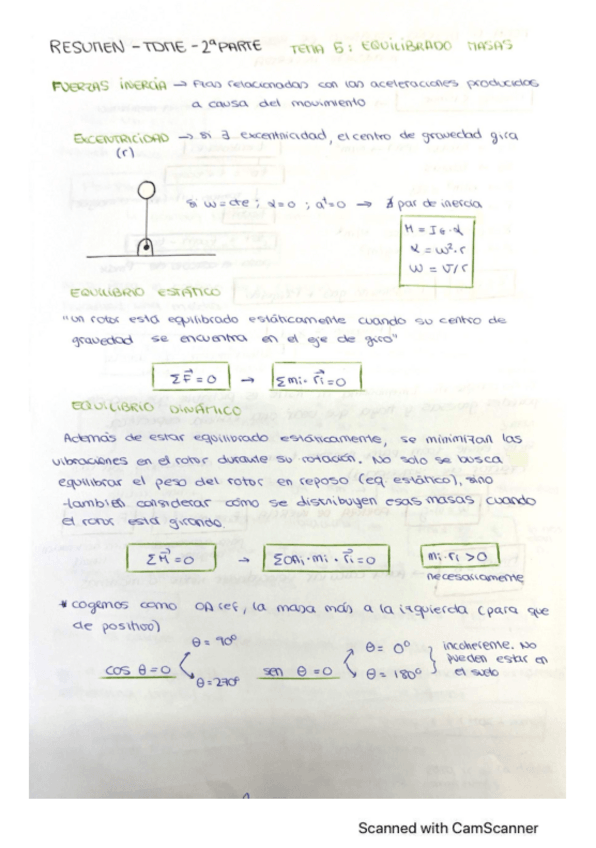 RESUMEN - TDME - 2ª PARTE TEMA 5: EQUILIBRADO MASAS
FUERZAS INERCIA → Fzas relacionadas con las aceleraciones producidas
a causa del movimiento
EXCENTRICIDAD → si ∃ excentricidad, el centro de gravedad gira
(r)
si ω=cte ; α=0 ; aᵗ=0 → ∄ par de inercia
M = I_G · α
α = ω² · r
ω = v/r
EQUILIBRIO ESTÁTICO
"un rotor está equilibrado estáticamente cuando su centro de
gravedad se encuentra en el eje de giro"
ΣF⃗ = 0 → Σmi · r⃗i = 0
EQUILIBRIO DINÁMICO
Además de estar equilibrado estáticamente, se minimizan las
vibraciones en el rotor durante su rotación. No solo se busca
equilibrar el peso del rotor en reposo (eq. estático), sino
también considerar cómo se distribuyen esas masas cuando
el rotor está girando.
ΣM⃗ = 0 → ΣOAi · mi · r⃗i = 0 mi · ri > 0
necesariamente
* cogemos como OA ref, la masa más a la izquierda (para que
de positivo)
cos θ = 0 θ = 90º θ = 270º
sen θ = 0 θ = 0º θ = 180º
incoherente. No
pueden estar en
el suelo
Scanned with CamScanner